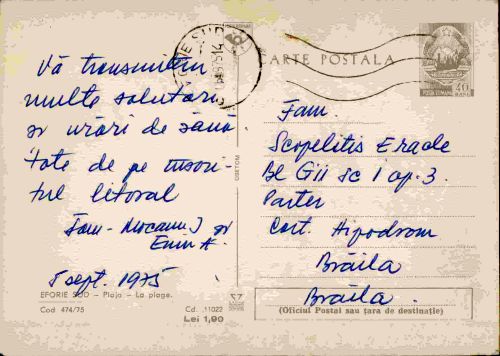 EFORIE SUD
CARTE POSTALA
POSTA ROMANA
40
BANI
Vă transmitem
multe salutari
si urări de sănă
tate de pe însori
tul litoral
Fam. Mocanu J si
Enin A.
5 sept. 1975
Fam.
Scopelitis Eracle
Bl G II sc 1 ap. 3.
Parter
Cart. Hipodrom
Brăila
Brăila
EFORIE SUD – Plaja – La plage.
Cod 474/75
Cd. 11022
Lei 1,90
(Oficiul Postal sau țara de destinație)